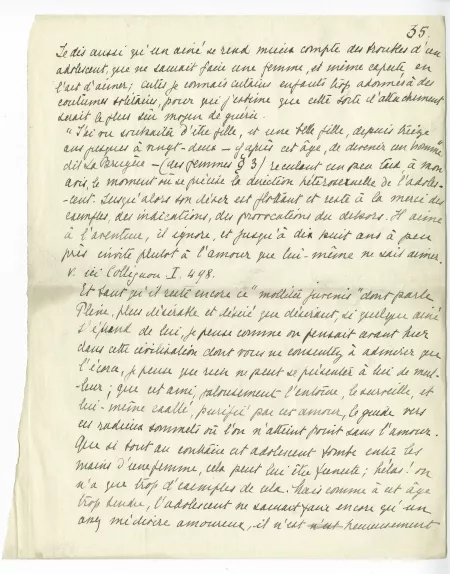 35.
Je dis aussi qu'un aîné se rend mieux compte des troubles d'un
adolescent, que ne saurait faire une femme, et même experte en
l'art d'aimer ; certes je connais certains enfants trop adonnés à des
coutumes solitaires, pour qui j'estime que cette sorte d'attachement
serait le plus sûr moyen de guérir.
"J'ai vu souhaité d'être fille, et une belle fille, depuis treize
ans jusques à vingt-deux – et après cet âge, de devenir un homme"
dit La Bruyère – (des femmes § 3) reculant un peu tard à mon
avis, le moment où se précise la direction hétérosexuelle de l'adoles-
-cent. Jusqu'alors son désir est flottant et reste à la merci des
exemples, des indications, des provocations du dehors. Il aime
à l'aventure, il ignore, et jusqu'à dix huit ans à peu
près invite plutôt à l'amour que lui-même ne sait aimer.
V. ici Collignon I. 498.
Et tant qu'il reste encore ce "mollité juvenis" dont parle
Pline, plus désirable et désiré que désirant, si quelque aîné
s'éprend de lui, je pense comme on pensait avant hier
dans cette civilisation dont vous ne consentez à admirer que
l'écorce, je pense que rien ne peut se présenter à lui de meil-
leur ; que cet ami, jalousement l'entoure, le surveille, et
lui-même exalté, purifié par cet amour, le guide vers
ces radieux sommets où l'on n'atteint point sans l'amour.
Que si tout au contraire cet adolescent tombe entre les
mains d'une femme, cela peut lui être funeste ; hélas ! on
n'a que trop d'exemples de cela. Mais comme à cet âge
trop tendre, l'adolescent ne saurait faire encore qu'un
assez médiocre amoureux, il n'est heureusement